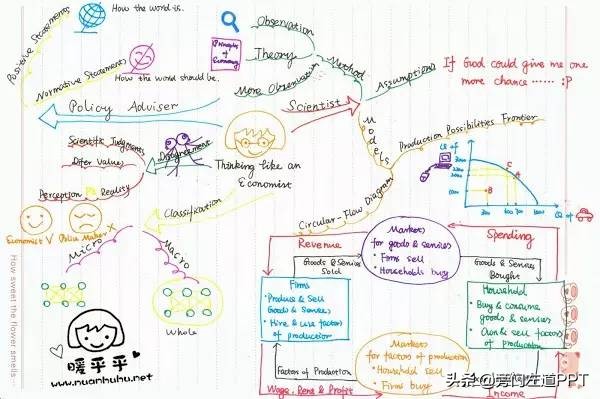 Positive Statements
How the world is.
Normative Statements
How the world should be.
Observation
Theory
More Observation
Method
Principles of Economy
Assumptions
If God could give me one
more chance ...... :P
Policy Adviser
Scientist
Models
Production Possibilities Frontier
Circular-Flow Diagram
Scientific Judgments
Differ Values
Perception VS Reality
Disagreement
Thinking like an
Economist
Classification
Economist V
Policy Maker X
Micro
Macro
Whole
3000
2200
2000
1000
A
B
C
300
600
700
1000
Q of
Markets
for goods & services
• Firms sell
• Households buy
Revenue
Spending
Goods & Services
Sold
Goods & Services
Bought
Firms
• Produce & Sell
Goods & Services
• Hire & use factors
of production
Household
• Buy & consume
goods & services
• Own & sell factors
of production
Markets
for factors of production
• Household sell
• Firms buy
Factors of Production
Wage, Rent & Profit
Income
How sweet the flower smells.
暖乎乎
www.nuanhuhu.net
头条@旁门左道PPT